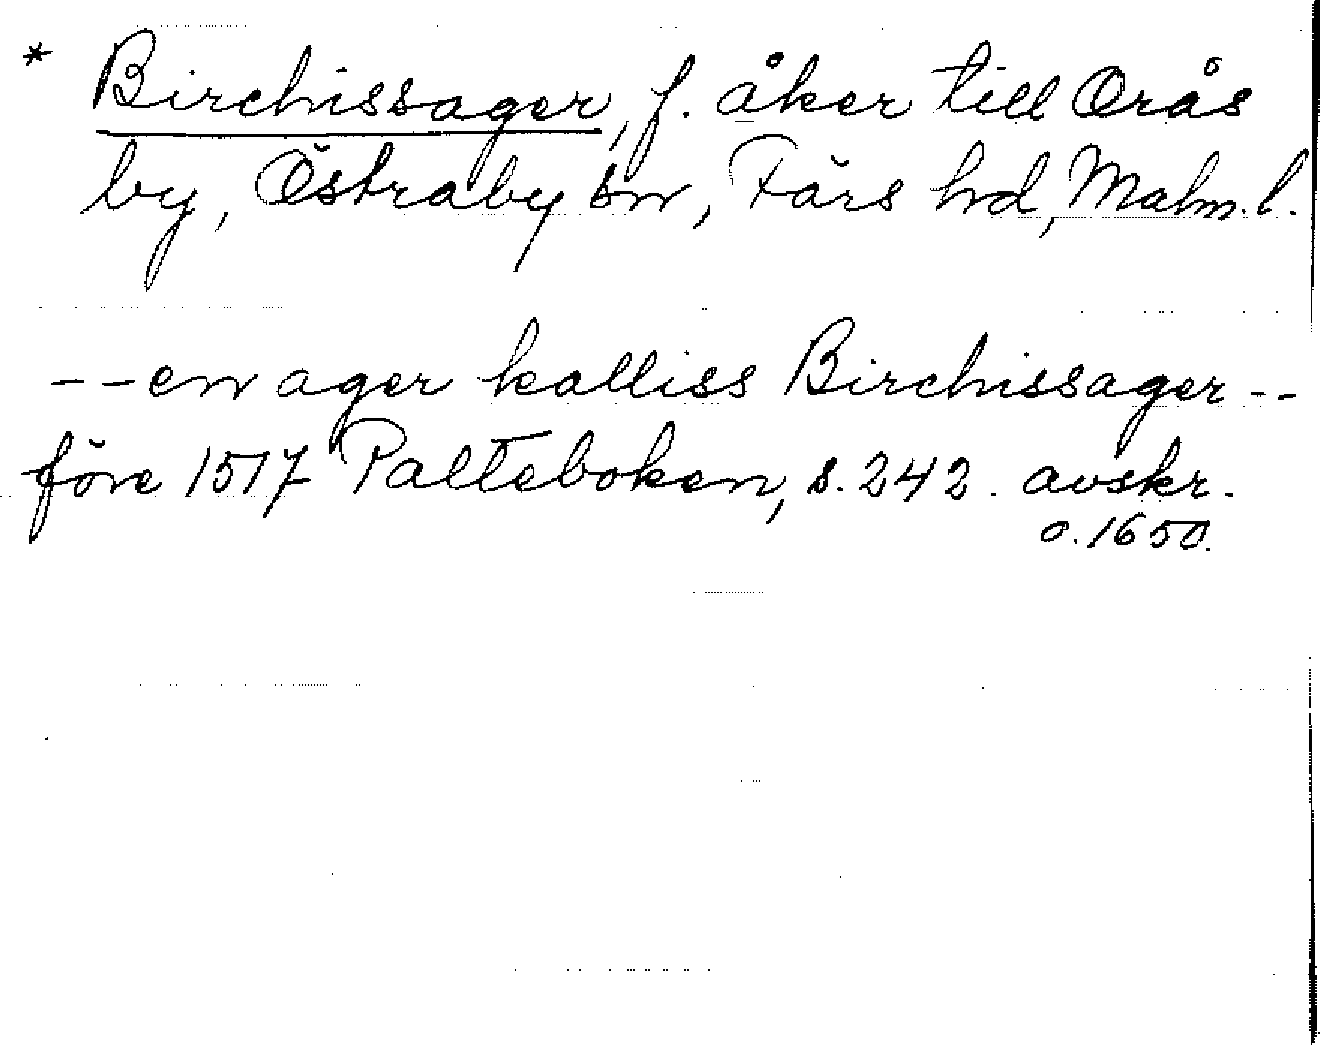 * Birchissager, f. åker till Orås
by, Östraby sn, Färs hd, Malm. l.
-- en ager kalliss Birchissager --
före 1517 Palteboken, s. 242. avskr.
o. 1650.